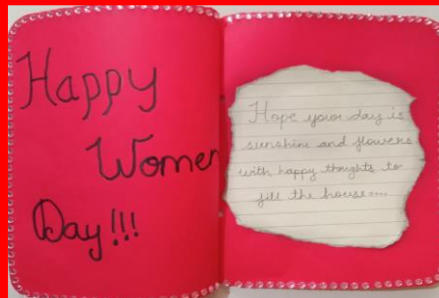 Happy
Women
Day!!!
Hope your day is
sunshine and flowers
with happy thoughts to
fill the house....